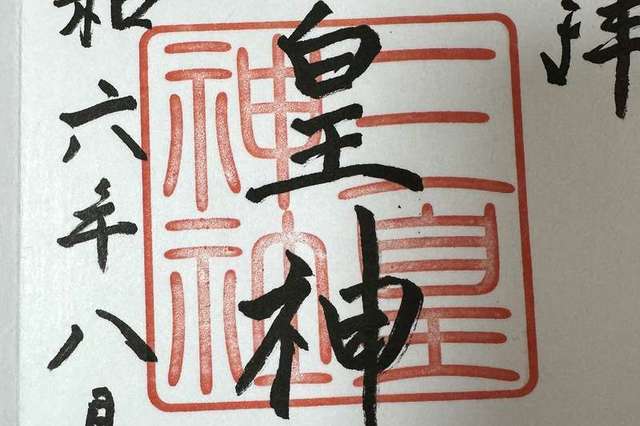 拝
皇神
三皇
神社
和六年八月